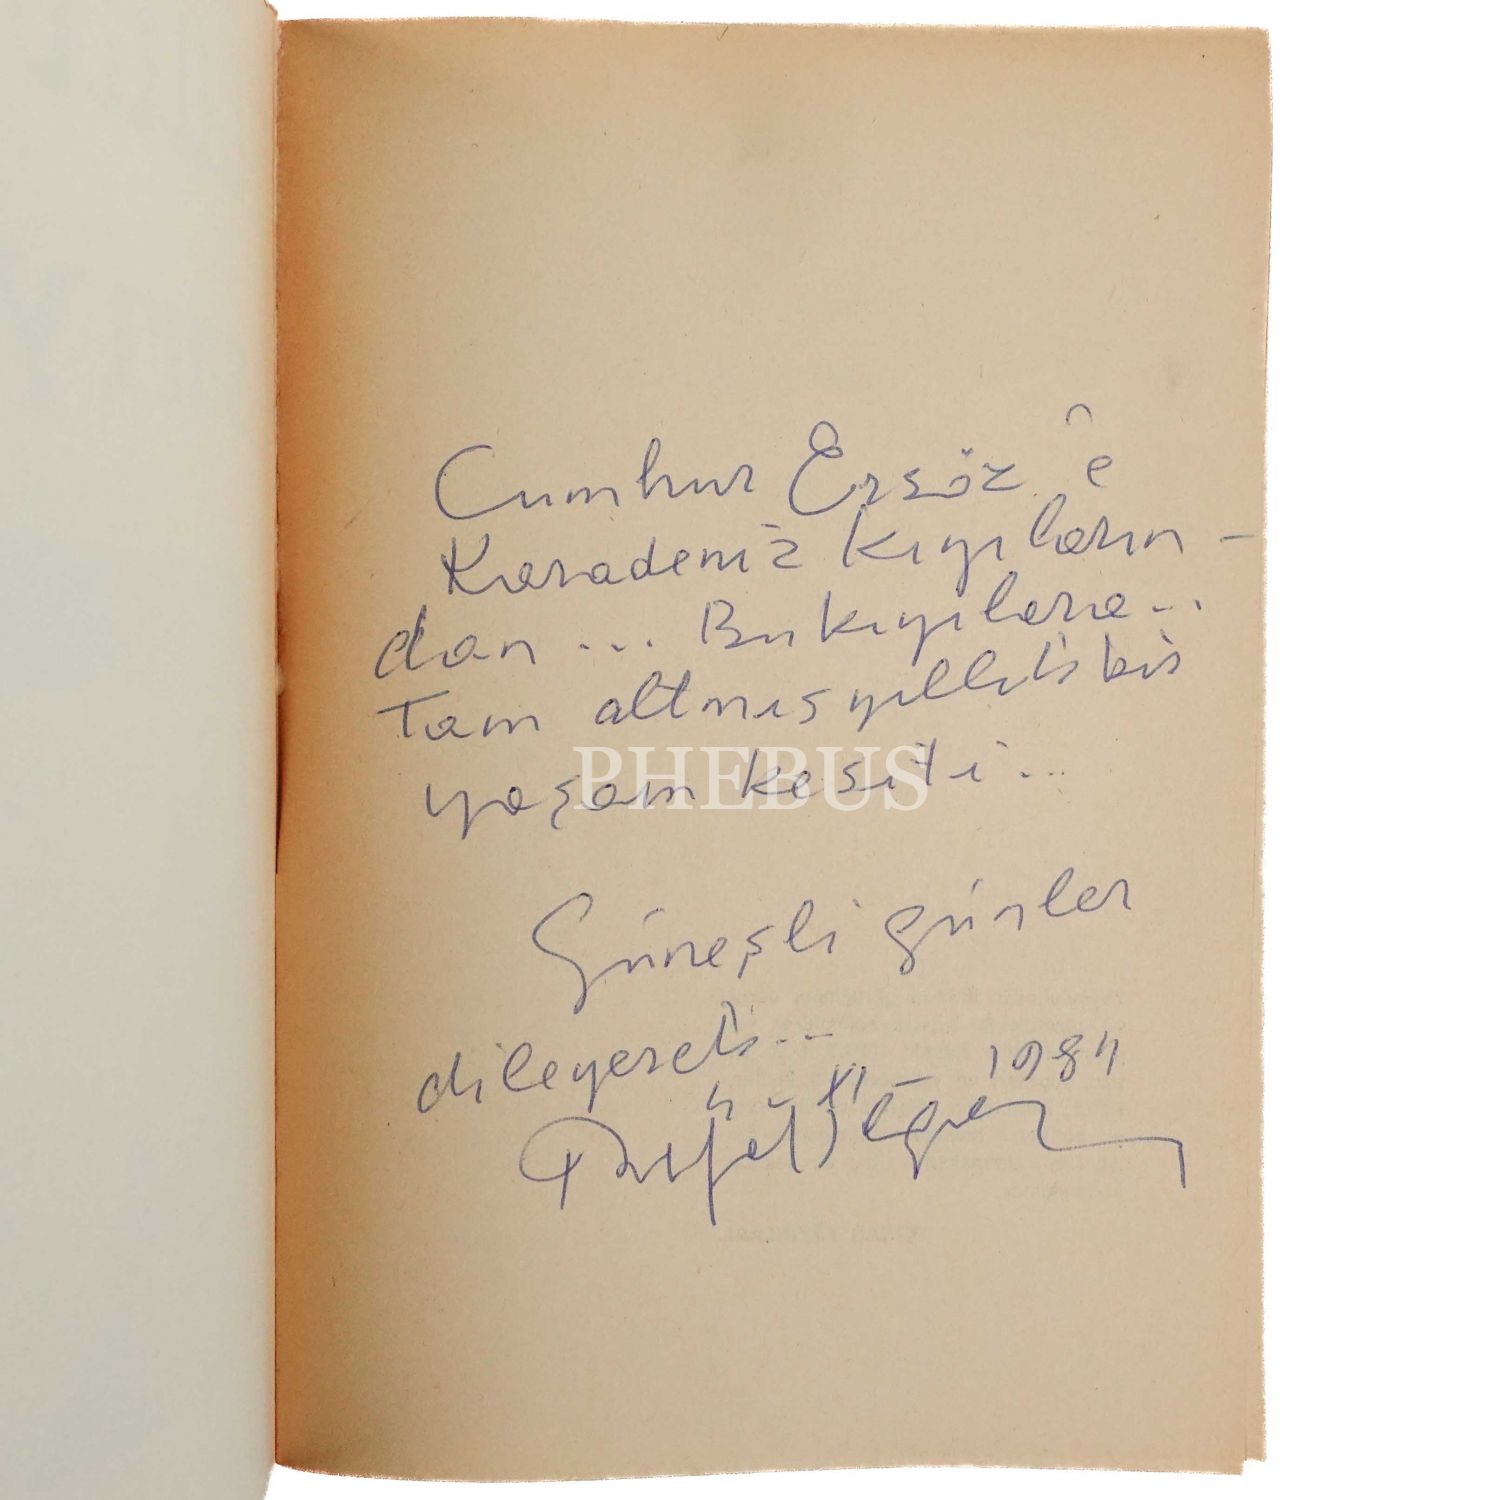 Cumhur Ersöz'e
Karadeniz kıyıların-
dan... Bu kıyılara...
Tam altmış yıllık bir
yaşam kesiti...
PHEBUS
Güneşli günler
dileyerek...
XI - 1984